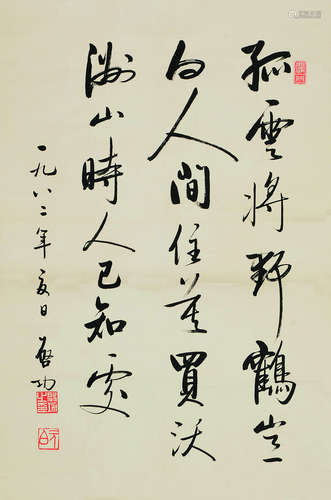 孤雲將野鶴豈
向人間住莫買沃
洲山時人已知處
一九八二年夏日 啓功